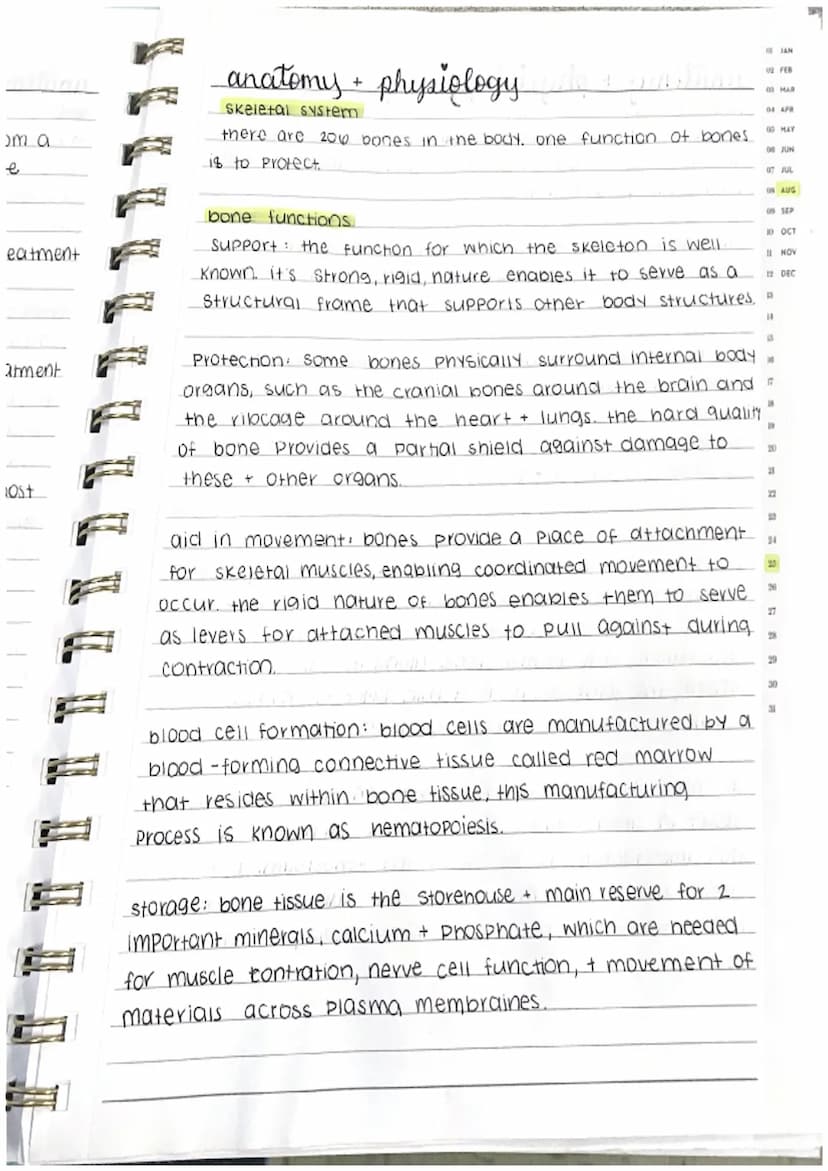 om a
e
eatment
atment
ost
anatomy + physiology
skeletal system
there are 206 bones in the body. one function of bones
is to protect.
bone functions
support: the function for which the skeleton is well
known. it's strong, rigid, nature enables it to serve as a
structural frame that supports other body structures.
Protection: some bones physically surround internal body
organs, such as the cranial bones around the brain and
the ribcage around the heart + lungs. the hard quality
of bone provides a partial shield against damage to
these + other organs.
aid in movement: bones provide a place of attachment
for skeletal muscles, enabling coordinated movement to
occur. the rigid nature of bones enables them to serve
as levers for attached muscles to pull against during
contraction.
blood cell formation: blood cells are manufactured by a
blood-forming connective tissue called red marrow
that resides within bone tissue, this manufacturing
process is known as hematopoiesis.
storage: bone tissue is the storehouse + main reserve for 2
important minerals, calcium + phosphate, which are needed
for muscle contration, nerve cell function, + movement of
materials across plasma membraines.
01 JAN
02 FEB
03 MAR
04 APR
05 MAY
06 JUN
07 JUL
08 AUG
09 SEP
10 OCT
11 NOV
12 DEC
13
14
15
16
17
18
19
20
21
22
23
24
25
26
27
28
29
30
31